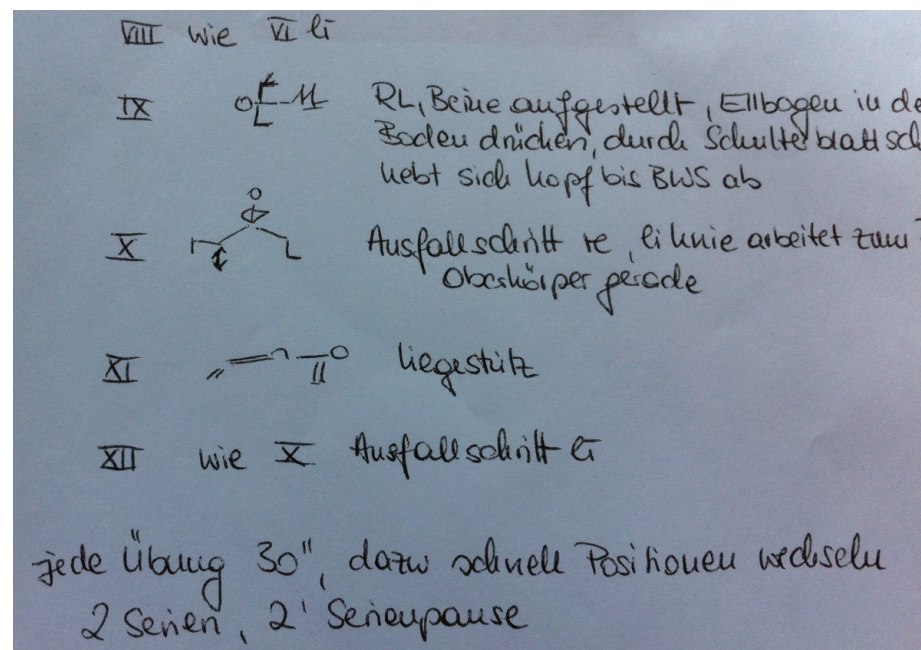 VIII wie VI li
IX RL, Beine aufgestellt, Ellbogen in de
Boden drücken, durch Schulterblatt sch
hebt sich Kopf bis BWS ab
X Ausfallschritt re, li Knie arbeitet zum
Oberkörper gerade
XI Liegestütz
XII wie X Ausfallschritt li
jede Übung 30", dazw schnell Positionen wechseln
2 Serien, 2' Serienpause